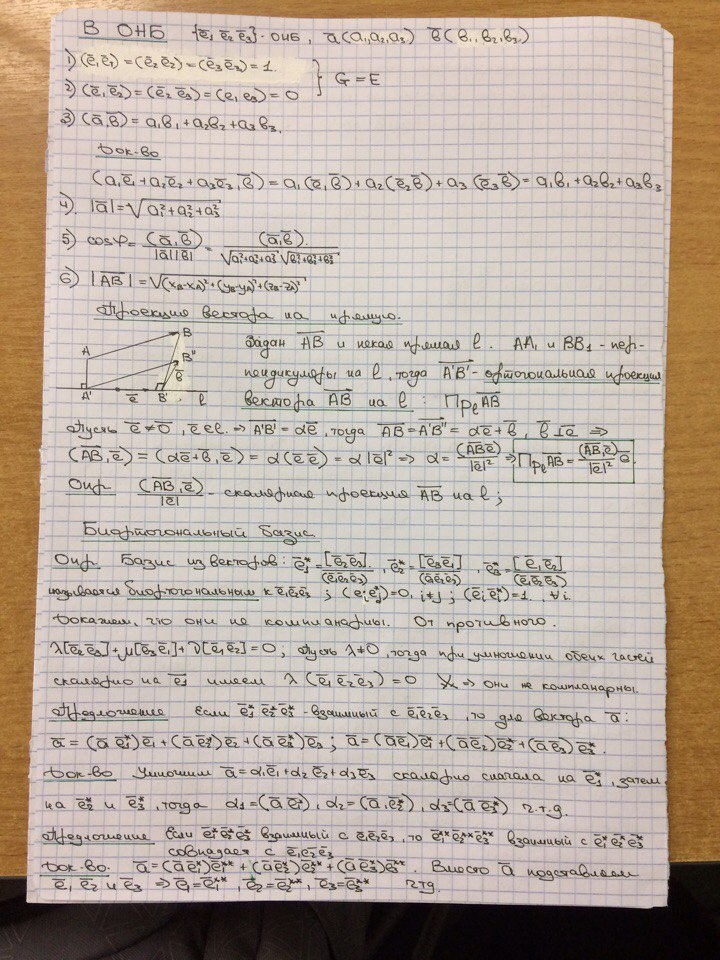 В ОНБ {ē₁ ē₂ ē₃} - ОНБ, ā(a₁,a₂,a₃) b̄(b₁,b₂,b₃)
1) (ē₁ē₁)=(ē₂ē₂)=(ē₃ē₃)=1.
2) (ē₁ē₂)=(ē₂ē₃)=(e₁e₃)=0 } G=E
3) (ā,b̄)=a₁b₁+a₂b₂+a₃b₃.
Док-во
(a₁ē₁+a₂ē₂+a₃ē₃,b̄)=a₁(ē₁b̄)+a₂(ē₂b̄)+a₃(ē₃b̄)=a₁b₁+a₂b₂+a₃b₃
4) |ā|=√(a₁²+a₂²+a₃²)
5) cosφ=(ā,b̄)/(|ā||b̄|)=(ā,b̄)/(√(a₁²+a₂²+a₃²)√(b₁²+b₂²+b₃²))
6) |AB|=√((x_B-x_A)²+(y_B-y_A)²+(z_B-z_A)²)
Проекция вектора на прямую.
A B B" b̄ A' ē B' l
Задан AB и некая прямая l. AA₁ и BB₁ - пер-
пендикуляры на l, тогда A'B' - ортогональная проекция
вектора AB на l : Пр_l AB
Пусть ē≠0̄, ē∈l. ⇒ A'B'=αē, тогда AB=A'B"=αē+b̄, b̄⊥ē ⇒
(AB,ē)=(αē+b̄,ē)=α(ēē)=α|ē|² ⇒ α=(AB,ē)/|ē|² ⇒ Пр_l AB=(AB,ē)/|ē|² ē
Опр (AB,ē)/|ē| - скалярная проекция AB на l;
Биортогональный базис
Опр. Базис из векторов: ē₁*=[ē₂ē₃]/(ē₁ē₂ē₃), ē₂*=[ē₃ē₁]/(ē₁ē₂ē₃), ē₃*=[ē₁ē₂]/(ē₁ē₂ē₃)
называется биортогональным к ē₁ē₂ē₃ ; (eᵢeⱼ*)=0, i≠j; (ēᵢēᵢ*)=1 ∀i.
Докажем, что они не компланарны. От противного.
λ[ē₂ē₃]+μ[ē₃ē₁]+ν[ē₁ē₂]=0; Пусть λ≠0, тогда при умножении обеих частей
скалярно на ē₁ имеем λ(ē₁ē₂ē₃)=0 ⇒ они не компланарны.
Предложение Если ē₁*ē₂*ē₃* - взаимный с ē₁ē₂ē₃, то для вектора ā:
ā=(āē₁*)ē₁+(āē₂*)ē₂+(āē₃*)ē₃ ; ā=(āē₁)ē₁*+(āē₂)ē₂*+(āē₃)ē₃*.
Док-во Умножим ā=α₁ē₁+α₂ē₂+α₃ē₃ скалярно сначала на ē₁*, затем
на ē₂* и ē₃*, тогда α₁=(āē₁*), α₂=(ā,ē₂*), α₃=(āē₃*) ч.т.д.
Предложение Если ē₁*ē₂*ē₃* взаимный с ē₁ē₂ē₃, то ē₁**ē₂**ē₃** взаимный с ē₁*ē₂*ē₃*
совпадает с ē₁ē₂ē₃
Док-во. ā=(āē₁*)ē₁**+(āē₂*)ē₂**+(āē₃*)ē₃**. Вместо ā подставляем
ē₁, ē₂ и ē₃ ⇒ ē₁=ē₁**, ē₂=ē₂**, ē₃=ē₃** чтд.